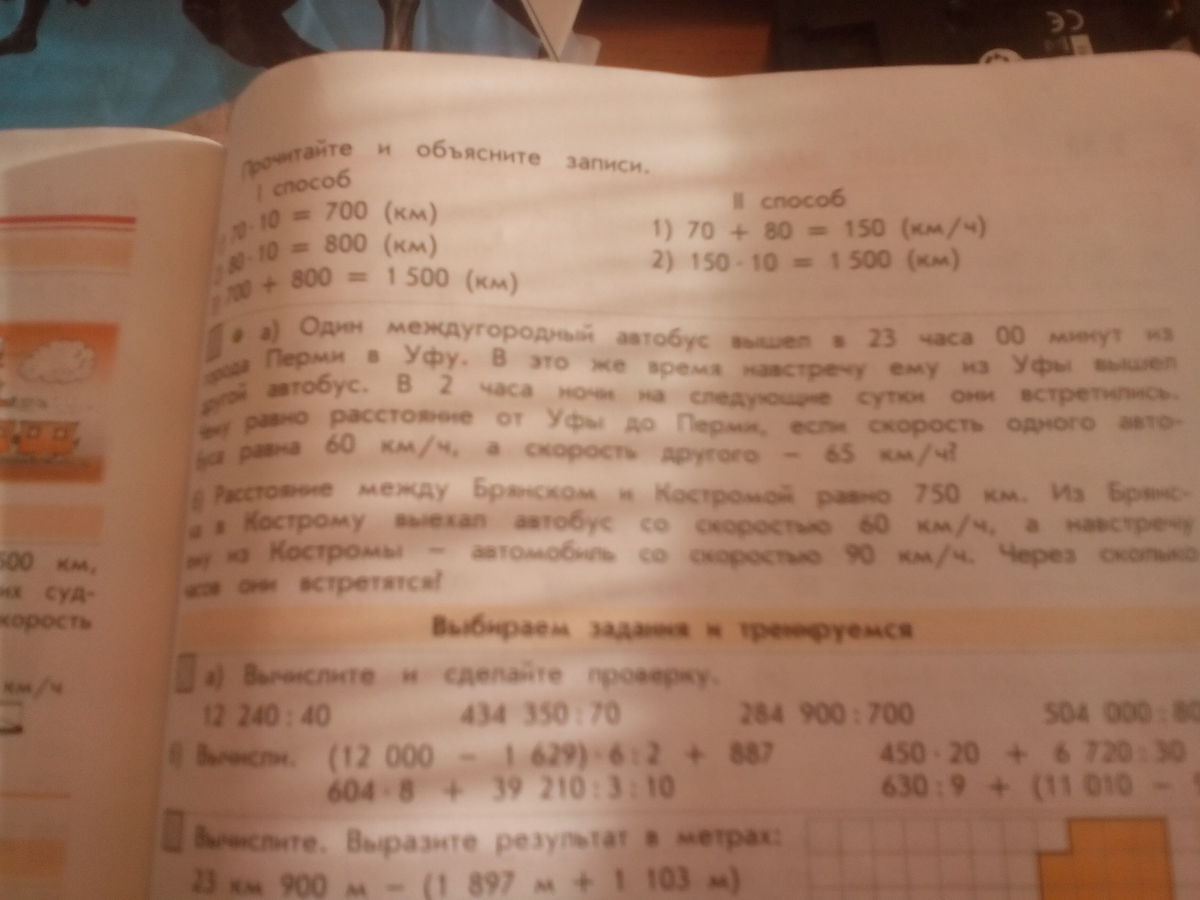 Прочитайте и объясните записи.
I способ
70 · 10 = 700 (км)
80 · 10 = 800 (км)
700 + 800 = 1 500 (км)
II способ
1) 70 + 80 = 150 (км/ч)
2) 150 · 10 = 1 500 (км)
а) Один междугородный автобус вышел в 23 часа 00 минут из
города Перми в Уфу. В это же время навстречу ему из Уфы вышел
другой автобус. В 2 часа ночи на следующие сутки они встретились.
Чему равно расстояние от Уфы до Перми, если скорость одного авто-
буса равна 60 км/ч, а скорость другого – 65 км/ч?
Расстояние между Брянском и Костромой равно 750 км. Из Брянс-
ка в Кострому выехал автобус со скоростью 60 км/ч, а навстречу
ему из Костромы – автомобиль со скоростью 90 км/ч. Через сколько
часов они встретятся?
Выбираем задания и тренируемся
а) Вычислите и сделайте проверку.
12 240 : 40 434 350 : 70 284 900 : 700 504 000 : 80
б) Вычисли. (12 000 – 1 629) · 6 : 2 + 887 450 · 20 + 6 720 : 30
604 · 8 + 39 210 : 3 : 10 630 : 9 + (11 010 –
Вычислите. Выразите результат в метрах:
23 км 900 м – (1 897 м + 1 103 м)
500 км,
их суд-
корость
км/ч
CE